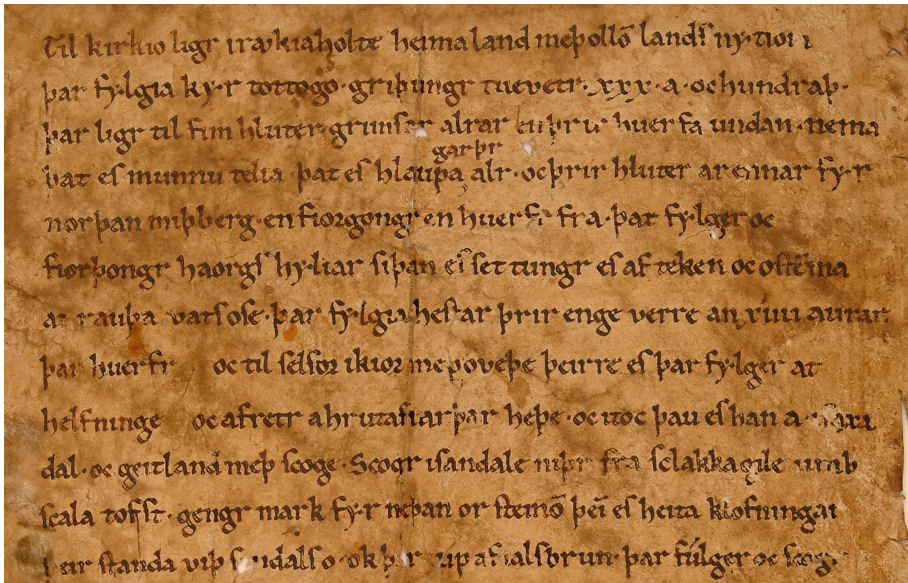 Til kirkio ligr i rækiaholte heimaland meþ ollō landſ ny·tiom
þar fylgia ky·r tottogo· griþungr tuevetr· xxx· a· oc hundraþ·
þar ligr til fim hluter· grimsár alrar en þrir huerfa undan· nema
þat eſ munnu telia þat eſ hlaupa garþr alr· oc þrir hluter arennar fy·r
norþan miþberg· en fiorgongr en huerfr fra· þat fylger oc
fiorþongr haorgſ hy·liar siþan eſ set tungr eſ af teken oc oſteina
at rauþa vatſ ose· þar fylgia heſtar þrir enge verre an xiiii aurar
þar huerfr oc til selfor i kior meþ oveþe þeirre eſ þar fylger at
helfninge oc afretr a hrutafiarþar heþe· oc itoc þau eſ han a· faxa
dal· oc geitland meþ scoge· Scogr i sandale niþr fra sclakkagile umb
scala tofſt· gengr mark fy·r neþan or ſteinō þeī eſ heita klofningar
þeir ſtanda viþ sandals o· ok þar up a fialsbrun· þar fúlger oc scogr